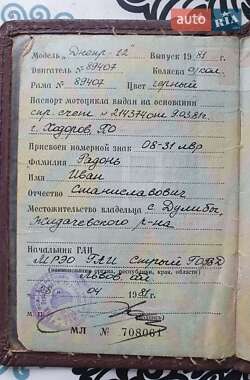 AUTO RIA
Модель „Днепр-12" Выпуск 1981 г.
Двигатель № 89407 Коляска №
Рама № 89407 Цвет черный
Паспорт мотоцикла выдан на основании
спр. счет № 214374 от 9.03.81г.
г. Ходоров, ПО
Присвоен номерной знак 08-31 лвр
Фамилия Радонь
Имя Иван
Отчество Станиславович
Местожительство владельца с. Дулибы,
Жидачевского р-на
Начальник ГАИ
МРЭО ГАИ Стрый ГОВД
(наименование органа, республики, края, области)
Львов. обл
08 04 1981г.
М. П.
МЛ № 708061